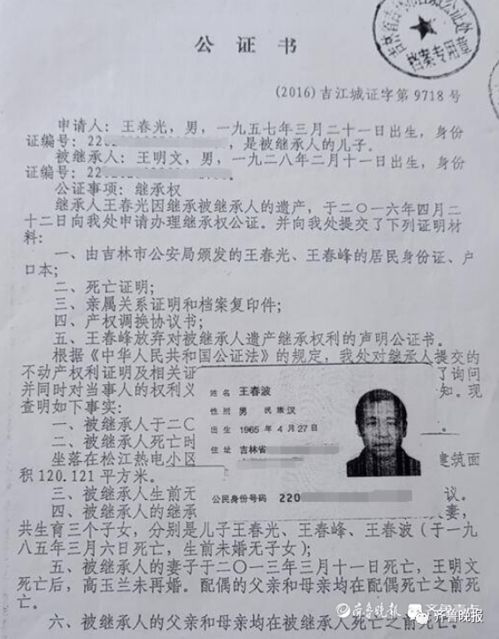 档案专用章
公证书
(2016)吉江城证字第9718号
申请人：王春光，男，一九五七年三月二十一日出生，身份
证编号：220 ，是被继承人的儿子。
被继承人：王明文，男，一九二八年二月十一日出生，身份
证编号：220
公证事项：继承权
继承人王春光因继承被继承人的遗产，于二〇一六年四月二
十二日向我处申请办理继承权公证。并向我处提交了下列证明材
料：
一、由吉林市公安局颁发的王春光、王春峰的居民身份证、户
口本；
二、死亡证明；
三、亲属关系证明和档案复印件；
四、产权调换协议书；
五、王春峰放弃对被继承人遗产继承权利的声明公证书。
根据《中华人民共和国公证法》的规定，我处对继承人提交的
不动产权利证明及相关证 了询问
并同时对当事人的权利义 知。现
查明如下事实：
一、被继承人于二〇
二、被继承人死亡时
坐落在松江热电小区 建筑面
积120.121平方米。
三、被继承人生前无 议。
四、被继承人的继承 妻，
姓名 王春波
性别 男 民族 汉
出生 1965年4月27日
住址 吉林省
公民身份号码 220
共生育三个子女，分别是儿子王春光、王春峰、王春波（于一九
八五年三月六日死亡，生前未婚无子女）；
五、被继承人的妻子于二〇一三年三月十一日死亡，王明文
死亡后，高玉兰未再婚。配偶的父亲和母亲均在配偶死亡之前死
亡。
六、被继承人的父亲和母亲均在被继承人死亡之前死亡。
齐鲁晚报
齐鲁晚报